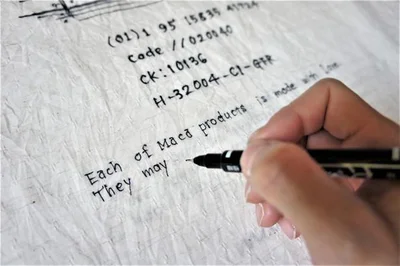 (01) 1 95 15835
Code // 020040
CK: 10136
H-32004-C1-GFR
Each of Maca products is made with love
They may